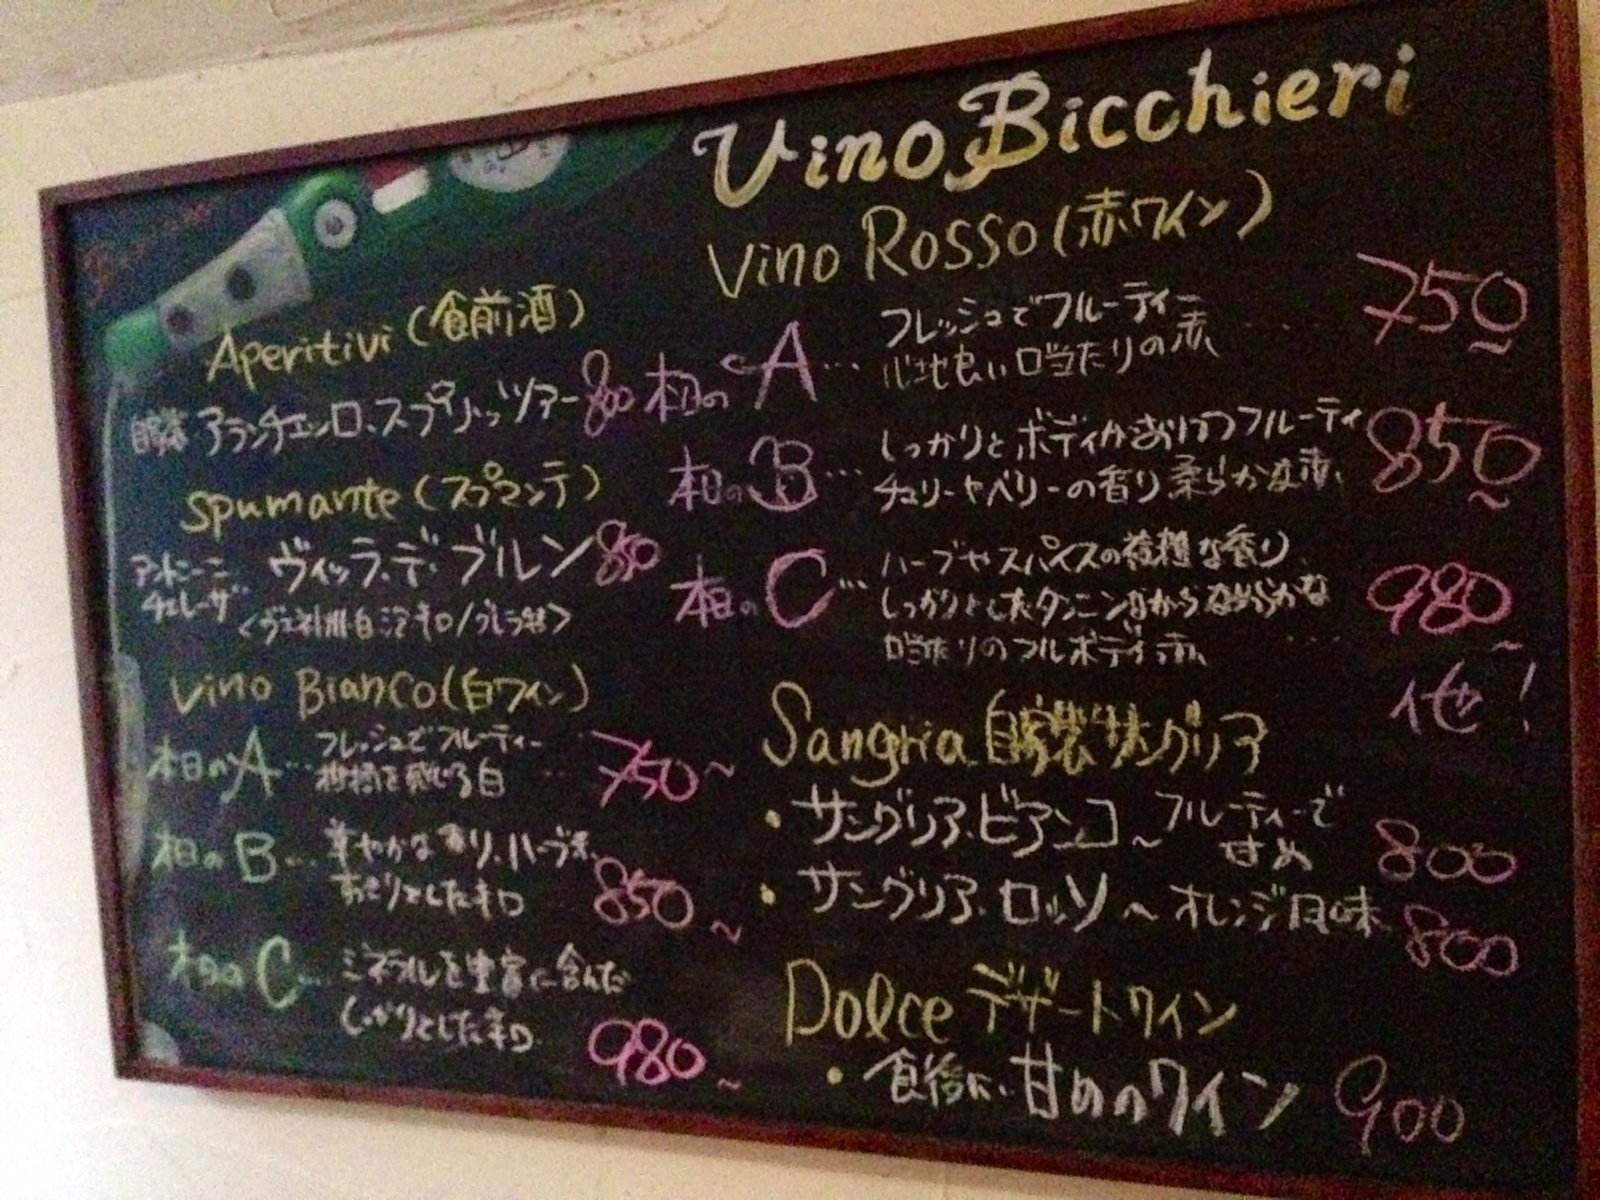 Vino Bicchieri
Aperitivi (食前酒)
自家 アランチェッロ、スプリッツァー 800
Spumante (スプマンテ)
アントニーニ
チェレーザ
ヴィッラ・デ・ブルン 850
<ヴェネト州 白 泡 辛口/グレラ>
Vino Bianco (白ワイン)
本日のA… フレッシュでフルーティー
柑橘を感じる白 … 750~
本日のB… 華やかな香り、ハーブ
すっきりとした辛口 850~
本日のC… ミネラルを豊富に含んだ
しっかりとした辛口 980~
Vino Rosso (赤ワイン)
本日のA… フレッシュでフルーティー
心地良い口当たりの赤 ・・・・ 750~
本日のB… しっかりとボディがあり フルーティ
チェリーやベリーの香り 柔らかな渋 850~
本日のC… ハーブやスパイスの複雑な香り
しっかりとしたタンニンながらなめらかな
口当たりのフルボディ赤 ・・・・ 980~
他!
Sangria 自家製サングリア
・サングリア・ビアンコ~フルーティーで
甘め 800
・サングリア・ロッソ~オレンジ風味 800
Dolce デザートワイン
・食後に 甘めのワイン 900